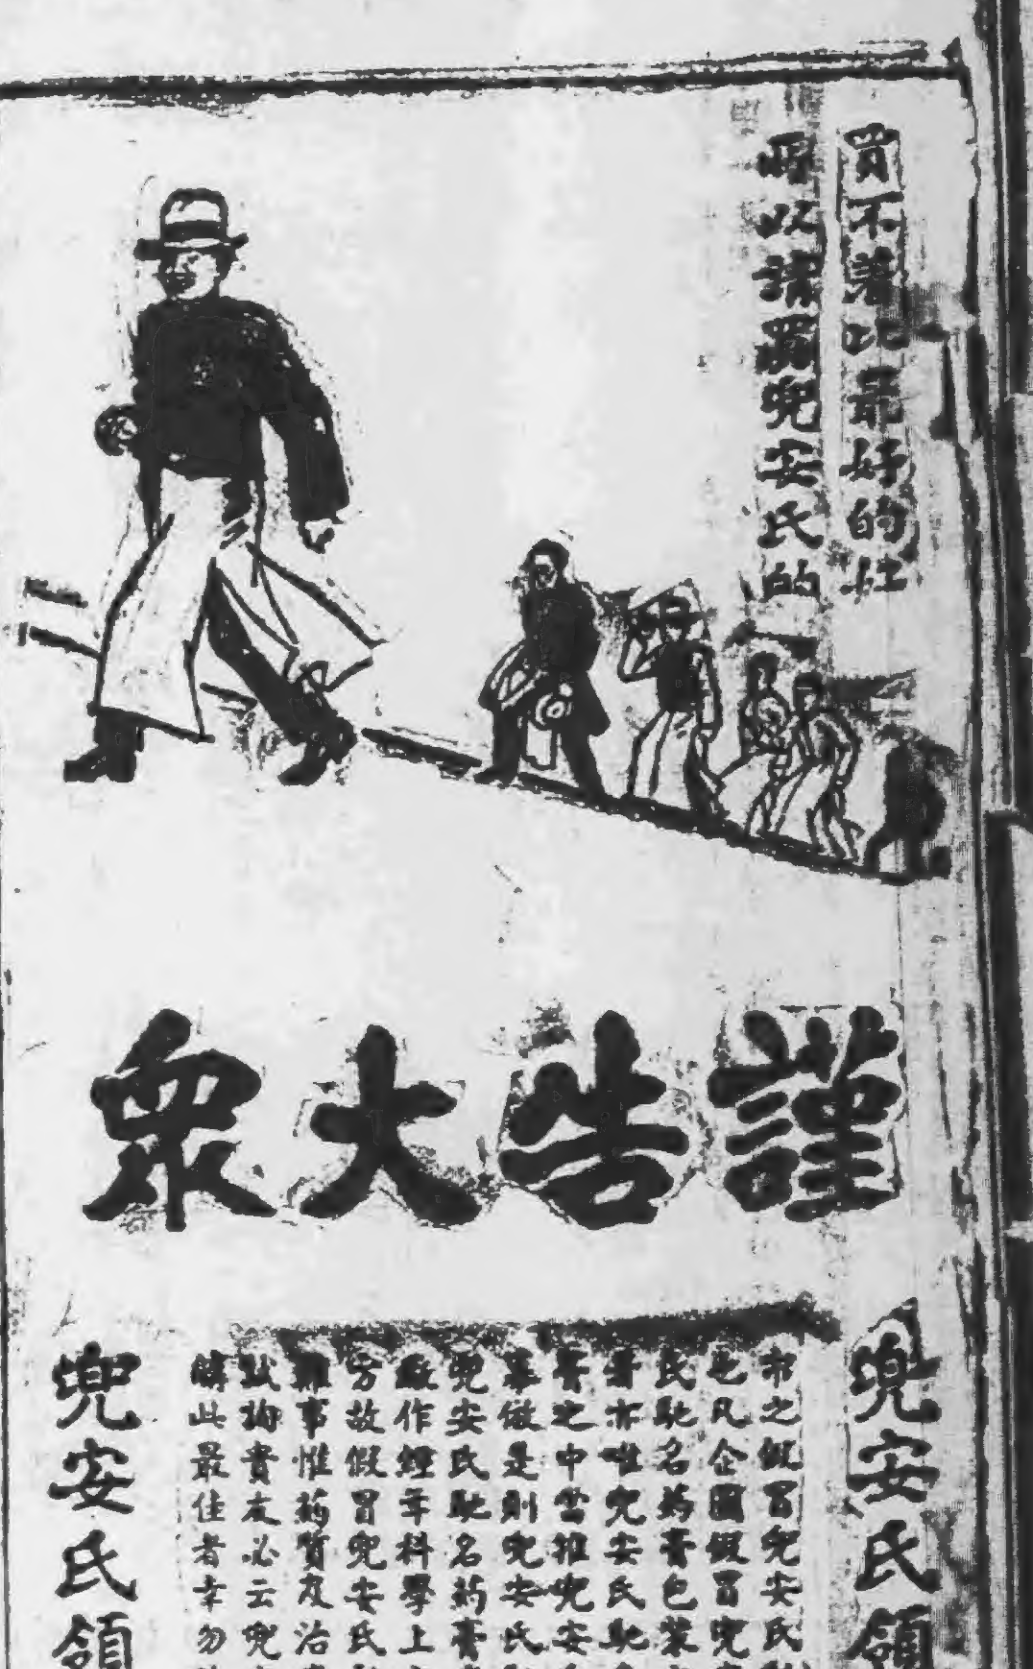 買不着比最好的好
所以請買兜安氏的
謹告大衆
兜安氏領
市之假冒兜安氏
也凡企圖假冒兜
氏馳名药膏包裝
者亦唯兜安氏馳
膏之中當推兜安
摹倣是則兜安氏
兜安氏馳名药膏
作經年科學上
方故假冒兜安氏
難事惟药質及治
試詢貴友必云兜
購此最佳者幸勿
兜安氏領